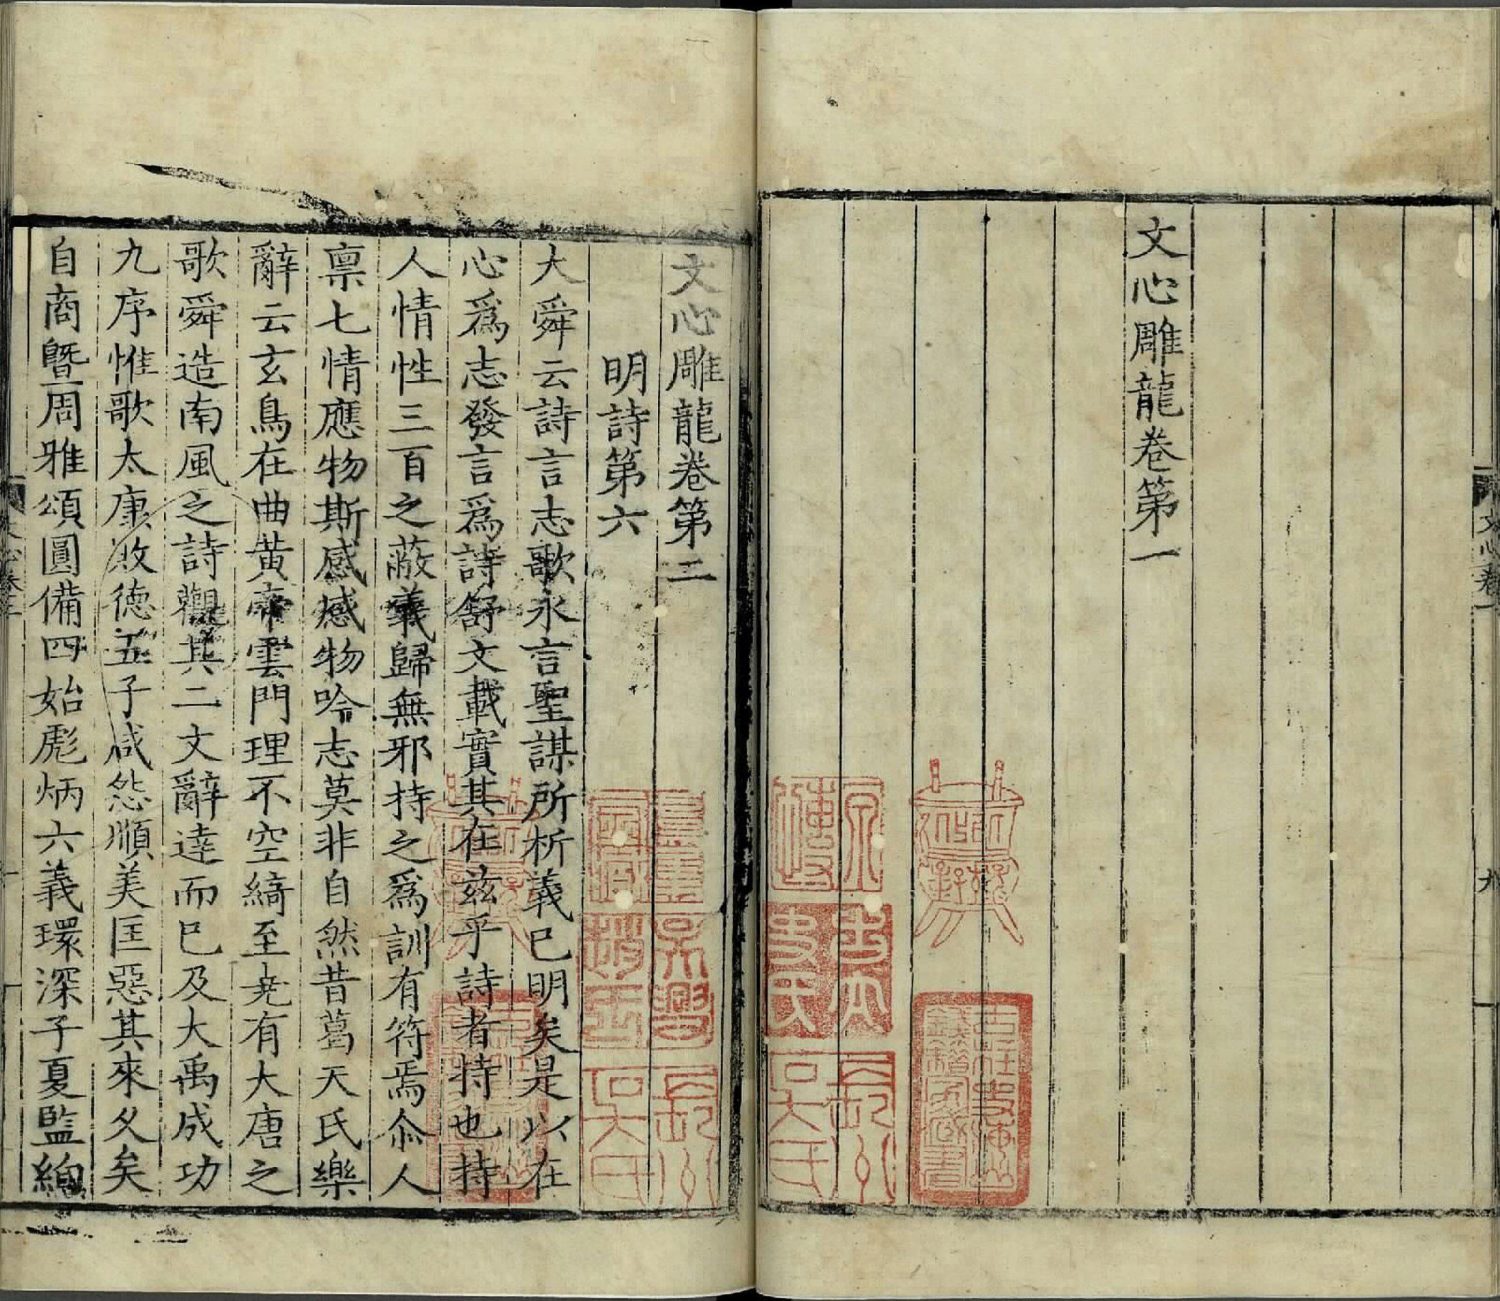 文心雕龍卷第一
文心卷一
九
文心雕龍卷第二
明詩第六
大舜云詩言志歌永言聖謀所析義已明矣是以在
心爲志發言爲詩舒文載實其在茲乎詩者持也持
人情性三百之蔽義歸無邪持之爲訓有符焉尒人
禀七情應物斯感感物吟志莫非自然昔葛天氏樂
辭云玄鳥在曲黃帝雲門理不空綺至尭有大唐之
歌舜造南風之詩觀其二文辭達而已及大禹成功
九序惟歌太康敗德五子咸怨順美匡惡其來久矣
自商曁周雅頌圓備四始彪炳六義環深子夏監絢